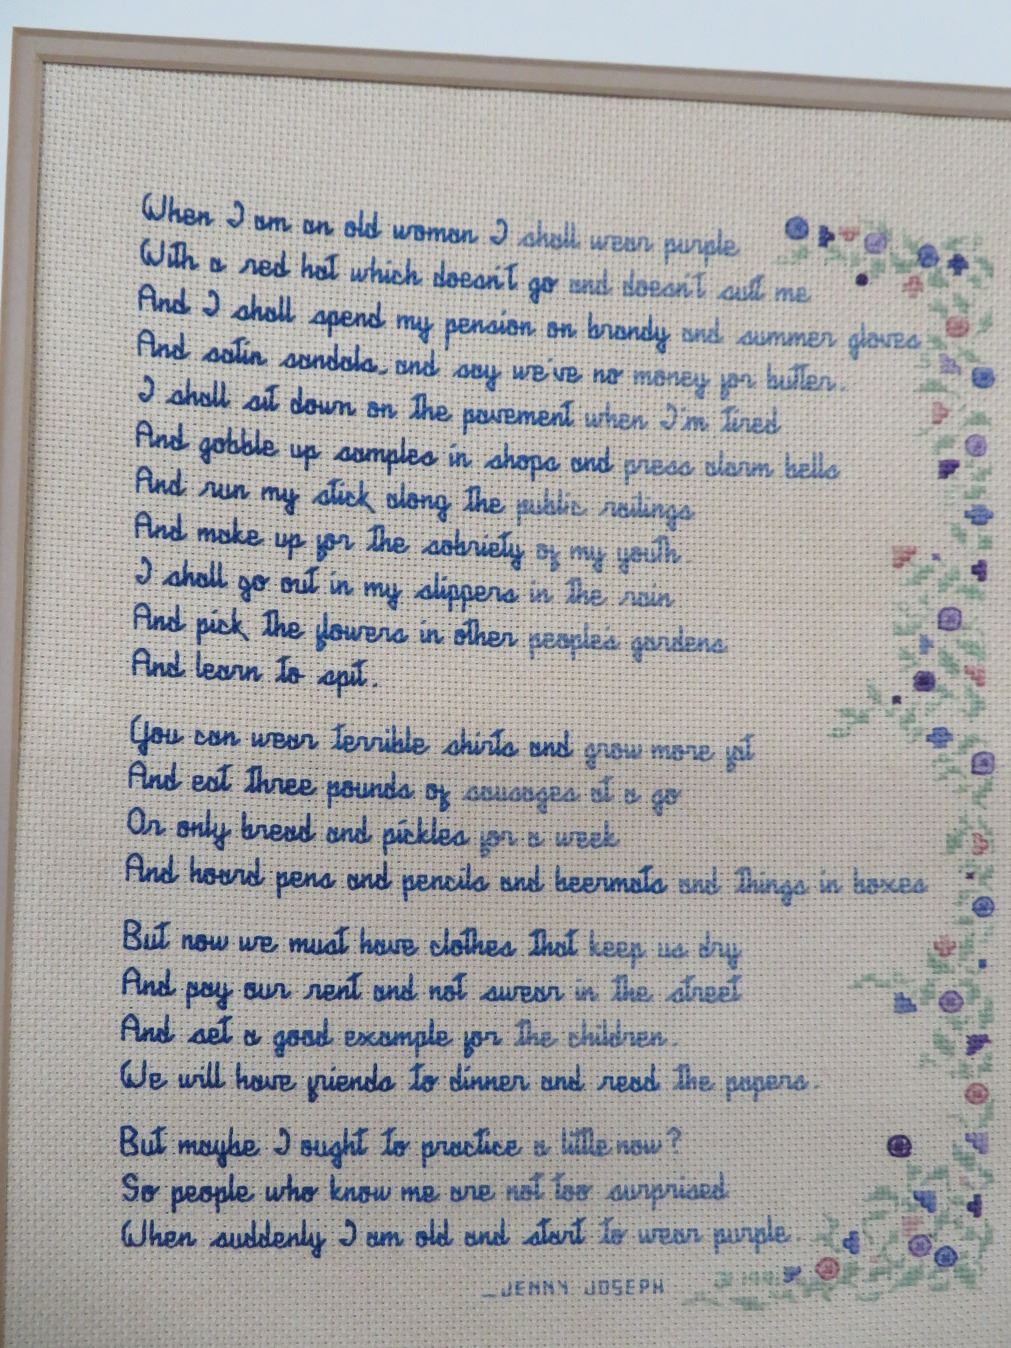 When I am an old woman I shall wear purple
With a red hat which doesn't go and doesn't suit me
And I shall spend my pension on brandy and summer gloves
And satin sandals, and say we've no money for butter.
I shall sit down on the pavement when I'm tired
And gobble up samples in shops and press alarm bells
And run my stick along the public railings
And make up for the sobriety of my youth.
I shall go out in my slippers in the rain
And pick the flowers in other people's gardens
And learn to spit.
You can wear terrible shirts and grow more fat
And eat three pounds of sausages at a go
Or only bread and pickles for a week
And hoard pens and pencils and beermats and things in boxes
But now we must have clothes that keep us dry
And pay our rent and not swear in the street
And set a good example for the children.
We will have friends to dinner and read the papers.
But maybe I ought to practice a little now?
So people who know me are not too surprised
When suddenly I am old and start to wear purple.
_JENNY JOSEPH